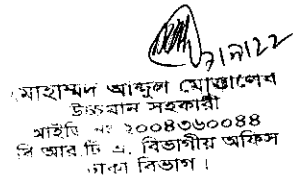 ৭।৭।২২
মোহাম্মদ আব্দুল মোত্তালেব
উচ্চমান সহকারী
আইডি নং ২০০৪৩৬০০৪৪
বি আর টি এ, বিভাগীয় অফিস
ঢাকা বিভাগ।